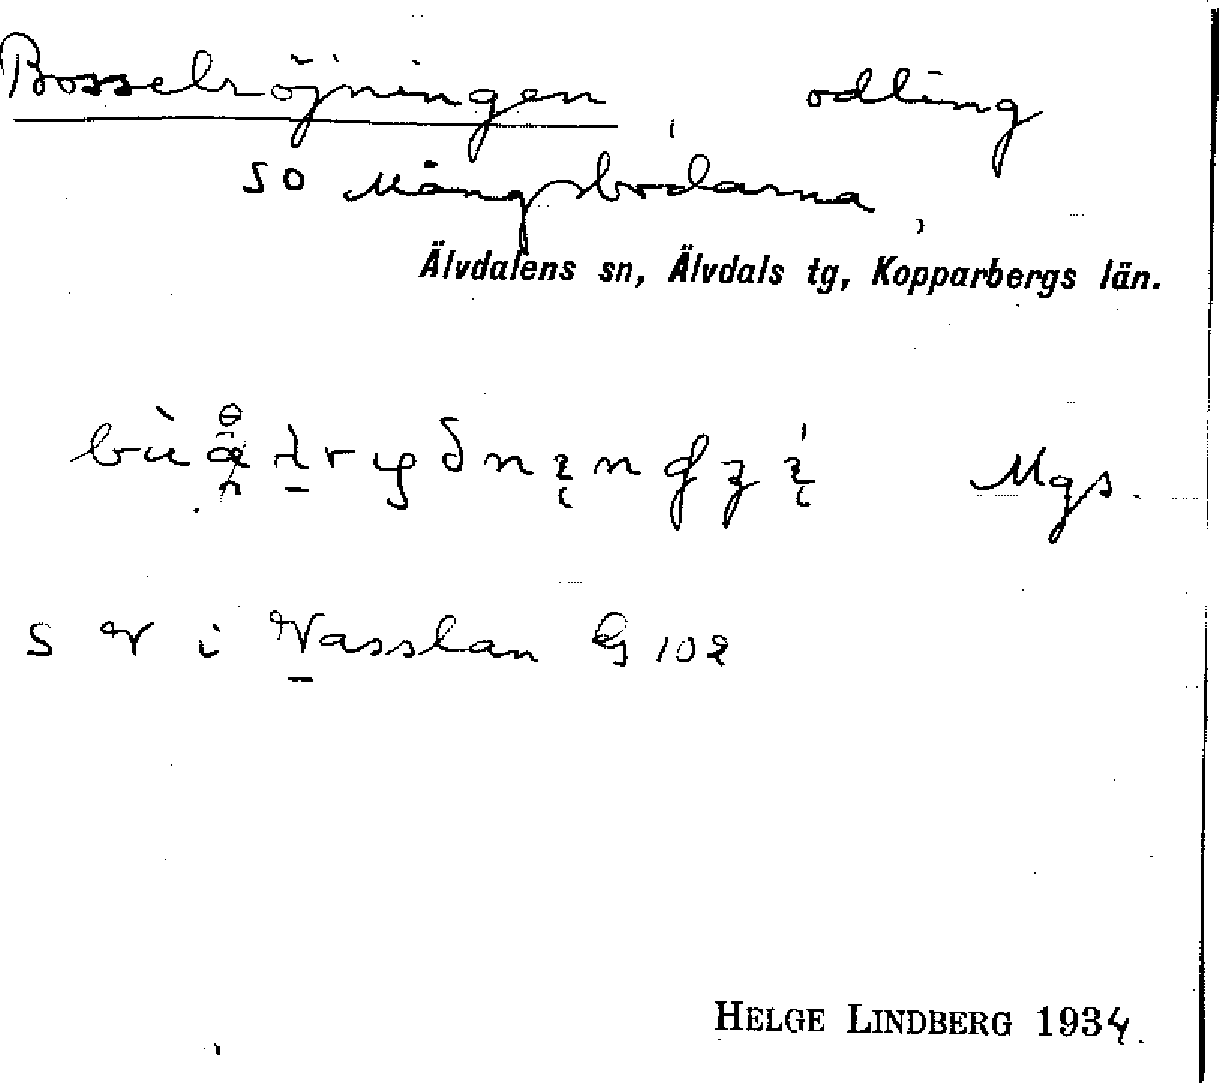 Bosselröjningen odling
SO Mångsbodarna,
Älvdalens sn, Älvdals tg, Kopparbergs län.
Mgs.
S V i Vasslan G 102
HELGE LINDBERG 1934.